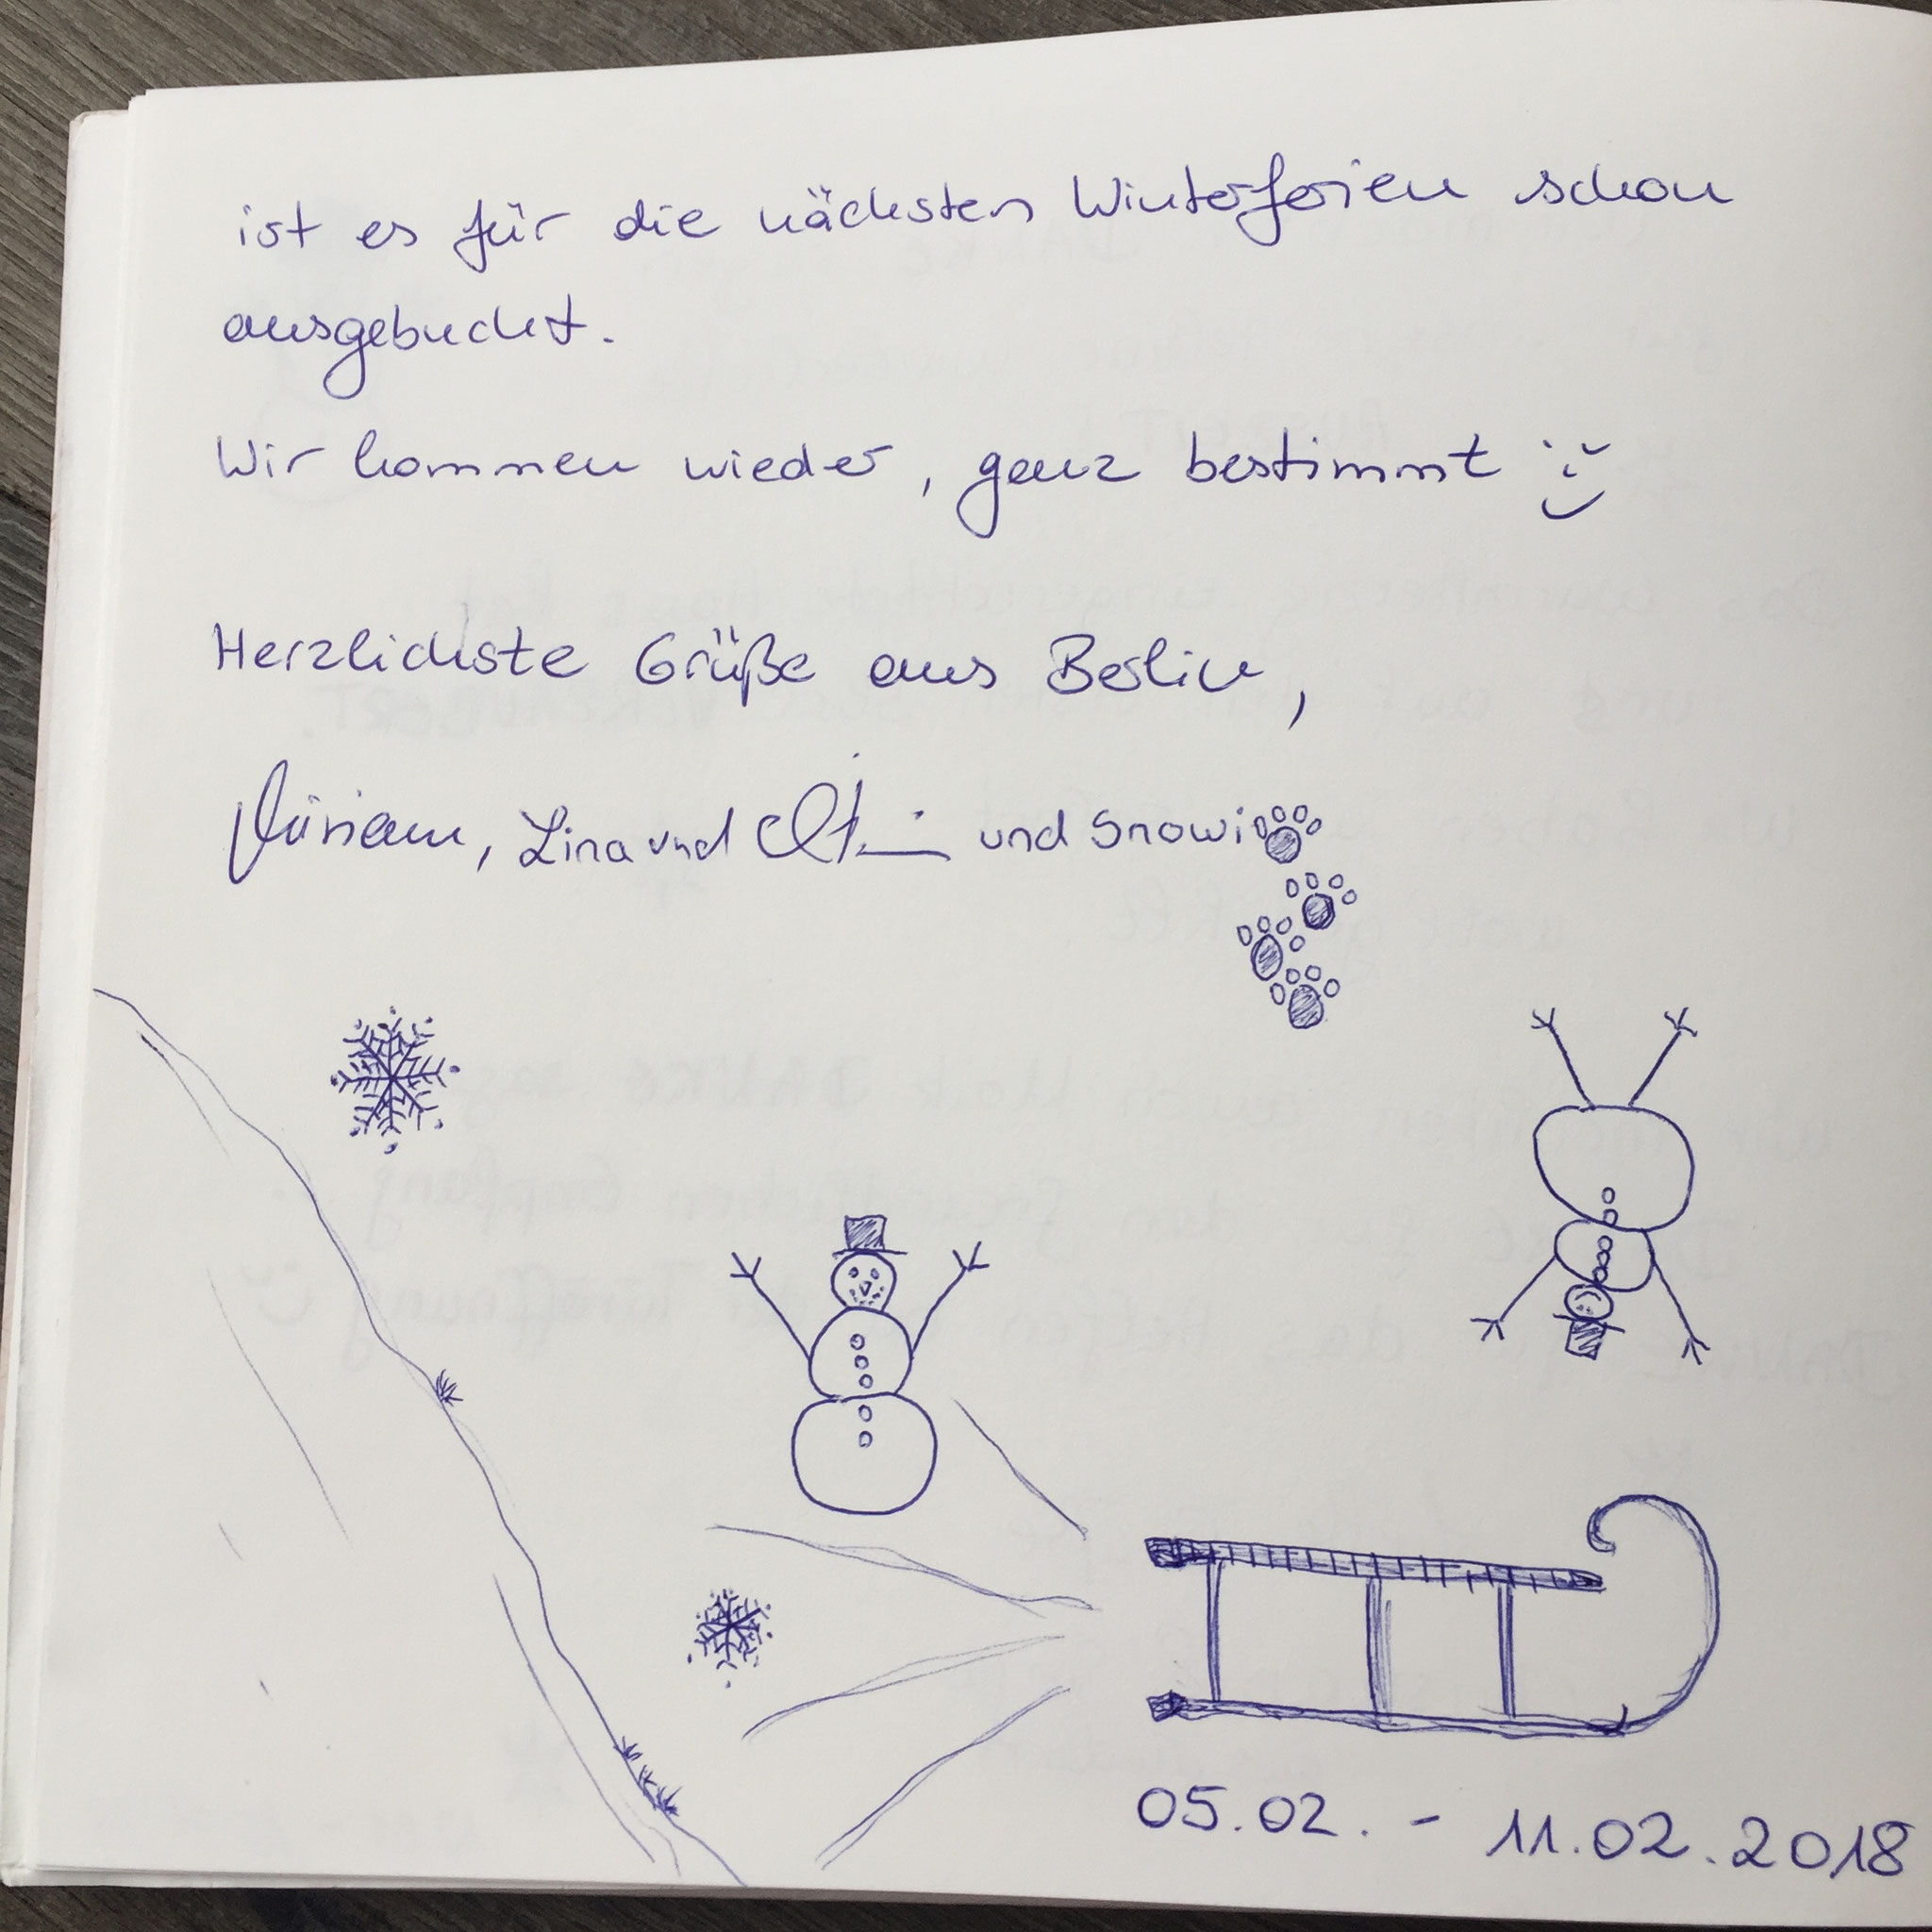 ist es für die nächsten Winterferien schon
ausgebucht.
Wir kommen wieder, ganz bestimmt
Herzlichste Grüße aus Berlin,
Miriam, Lina und und Snowi
05.02. - 11.02.2018